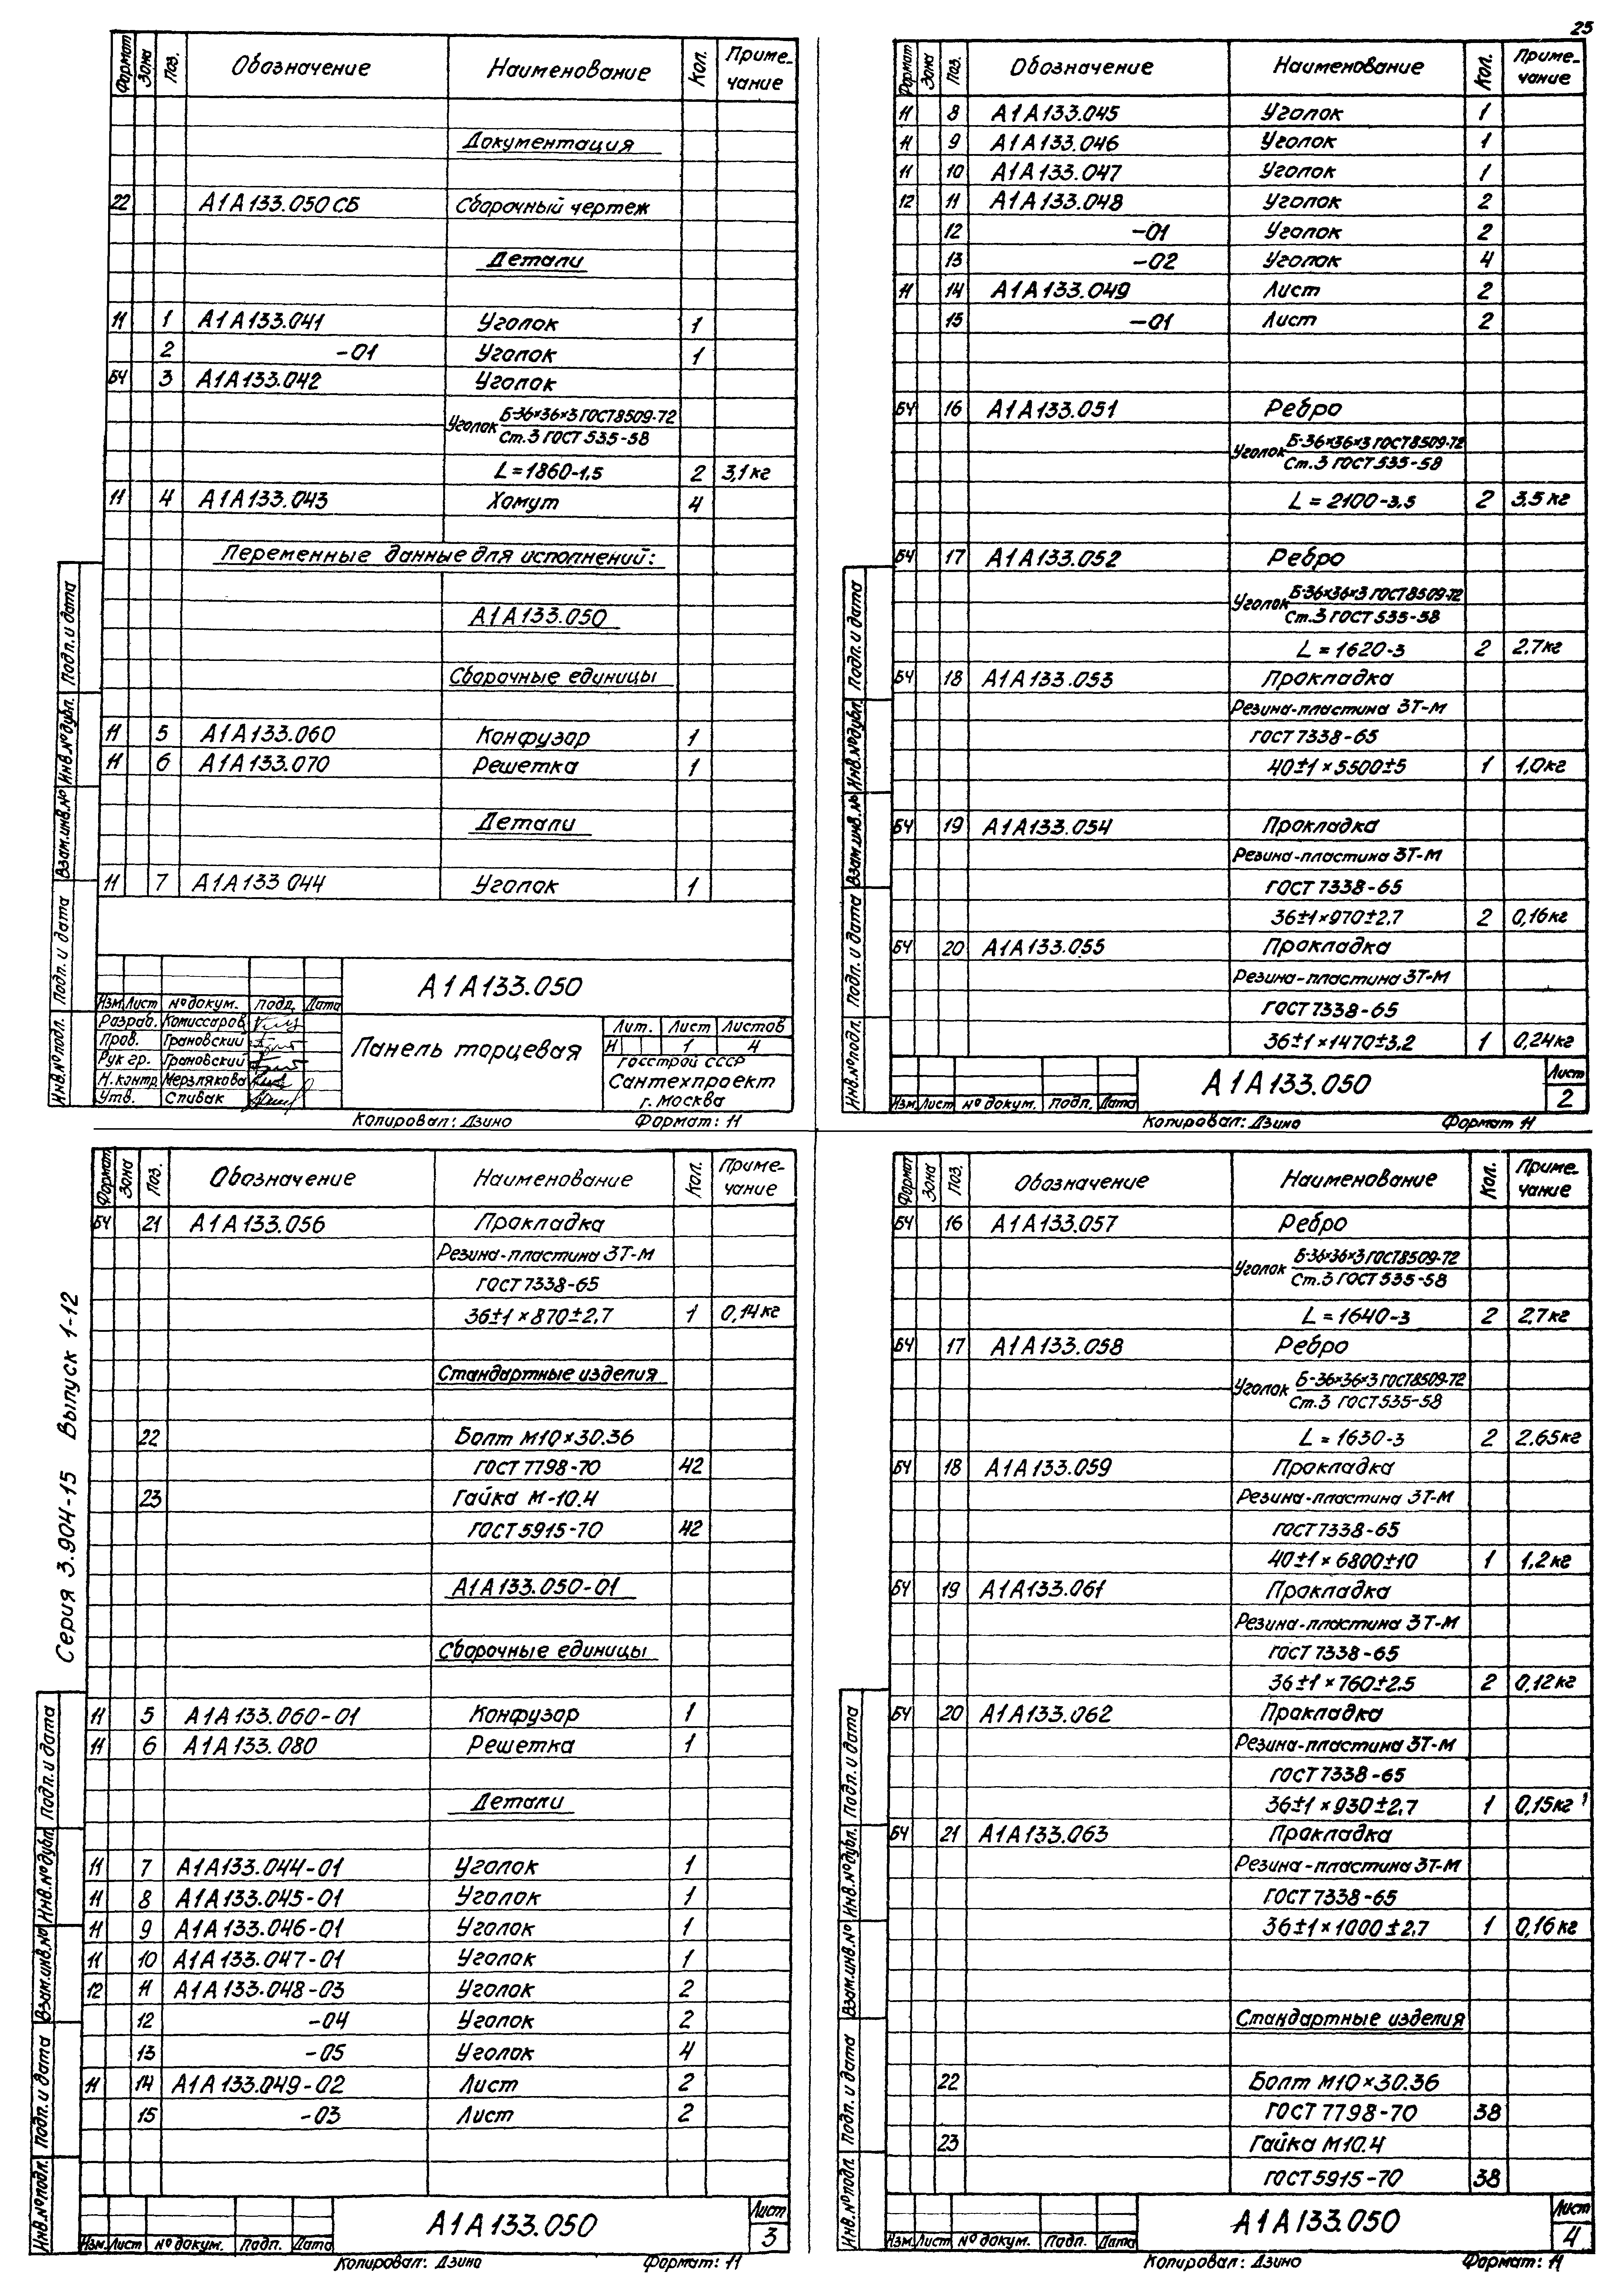 25
Формат Зона Поз. Обозначение Наименование Кол. Приме-
чание
Документация
22 А1А133.050 СБ Сборочный чертеж
Детали
11 1 А1А133.041 Уголок 1
2 -01 Уголок 1
БЧ 3 А1А133.042 Уголок
Уголок Б-36×36×3 ГОСТ 8509-72
Ст.3 ГОСТ 535-58
L=1860-1,5 2 3,1 кг
11 4 А1А133.043 Хомут 4
Переменные данные для исполнений:
А1А133.050
Сборочные единицы
11 5 А1А133.060 Конфузор 1
11 6 А1А133.070 Решетка 1
Детали
11 7 А1А133 044 Уголок 1
Инв.№подл. Подп. и дата Взам.инв.№ Инв.№дубл. Подп. и дата
А1А133.050
Изм. Лист № докум. Подп. Дата
Разраб. Комиссаров
Пров. Грановский
Рук гр. Грановский
Н.контр Мерзлякова
Утв. Спивак
Панель торцевая
Лит. Лист Листов
И 1 4
Госстрой СССР
Сантехпроект
г. Москва
Копировал: Дзино Формат: 11
Формат Зона Поз. Обозначение Наименование Кол. Приме-
чание
11 8 А1А133.045 Уголок 1
11 9 А1А133.046 Уголок 1
11 10 А1А133.047 Уголок 1
12 11 А1А133.048 Уголок 2
12 -01 Уголок 2
13 -02 Уголок 4
11 14 А1А133.049 Лист 2
15 -01 Лист 2
БЧ 16 А1А133.051 Ребро
Уголок Б-36×36×3 ГОСТ 8509-72
Ст.3 ГОСТ 535-58
L = 2100-3,5 2 3.5 кг
БЧ 17 А1А133.052 Ребро
Уголок Б-36×36×3 ГОСТ 8509-72
Ст.3 ГОСТ 535-58
L = 1620-3 2 2.7кг
БЧ 18 А1А133.053 Прокладка
Резина-пластина 3Т-М
ГОСТ 7338-65
40±1 × 5500±5 1 1,0кг
БЧ 19 А1А133.054 Прокладка
Резина-пластина 3Т-М
ГОСТ 7338-65
36±1 × 970±2,7 2 0,16кг
БЧ 20 А1А133.055 Прокладка
Резина-пластина 3Т-М
ГОСТ 7338-65
36±1 × 1470±3,2 1 0,24кг
Инв.№подл. Подп. и дата Взам.инв.№ Инв.№дубл. Подп. и дата
Изм. Лист № докум. Подп. Дата
А1А133.050
Лист
2
Копировал: Дзино Формат 11
Серия 3.904-15 Выпуск 1-12
Формат Зона Поз. Обозначение Наименование Кол. Приме-
чание
БЧ 21 А1А133.056 Прокладка
Резина-пластина 3Т-М
ГОСТ 7338-65
36±1 × 870±2,7 1 0,14кг
Стандартные изделия
22 Болт М10×30.36
ГОСТ 7798-70 42
23 Гайка М-10.4
ГОСТ 5915-70 42
А1А133.050-01
Сборочные единицы
11 5 А1А133.060-01 Конфузор 1
11 6 А1А133.080 Решетка 1
Детали
11 7 А1А133.044-01 Уголок 1
11 8 А1А133.045-01 Уголок 1
11 9 А1А133.046-01 Уголок 1
11 10 А1А133.047-01 Уголок 1
12 11 А1А133.048-03 Уголок 2
12 -04 Уголок 2
13 -05 Уголок 4
11 14 А1А133.049-02 Лист 2
15 -03 Лист 2
Инв.№подл. Подп. и дата Взам.инв.№ Инв.№дубл. Подп. и дата
Изм. Лист № докум. Подп. Дата
А1А133.050
Лист
3
Копировал: Дзино Формат: 11
Формат Зона Поз. Обозначение Наименование Кол. Приме-
чание
БЧ 16 А1А133.057 Ребро
Уголок Б-36×36×3 ГОСТ 8509-72
Ст.3 ГОСТ 535-58
L = 1640-3 2 2,7кг
БЧ 17 А1А133.058 Ребро
Уголок Б-36×36×3 ГОСТ 8509-72
Ст.3 ГОСТ 535-58
L = 1630-3 2 2.65кг
БЧ 18 А1А133.059 Прокладка
Резина-пластина 3Т-М
ГОСТ 7338-65
40±1 × 6800±10 1 1,2 кг
БЧ 19 А1А133.061 Прокладка
Резина-пластина 3Т-М
ГОСТ 7338-65
36±1 × 760±2.5 2 0,12кг
БЧ 20 А1А133.062 Прокладка
Резина-пластина 3Т-М
ГОСТ 7338-65
36±1 × 930±2,7 1 0,15кг
БЧ 21 А1А133.063 Прокладка
Резина-пластина 3Т-М
ГОСТ 7338-65
36±1 × 1000±2,7 1 0,16 кг
Стандартные изделия
22 Болт М10×30.36
ГОСТ 7798-70 38
23 Гайка М10.4
ГОСТ 5915-70 38
Инв.№подл. Подп. и дата Взам.инв.№ Инв.№дубл. Подп. и дата
Изм. Лист № докум. Подп. Дата
А1А133.050
Лист
4
Копировал: Дзино Формат: 11